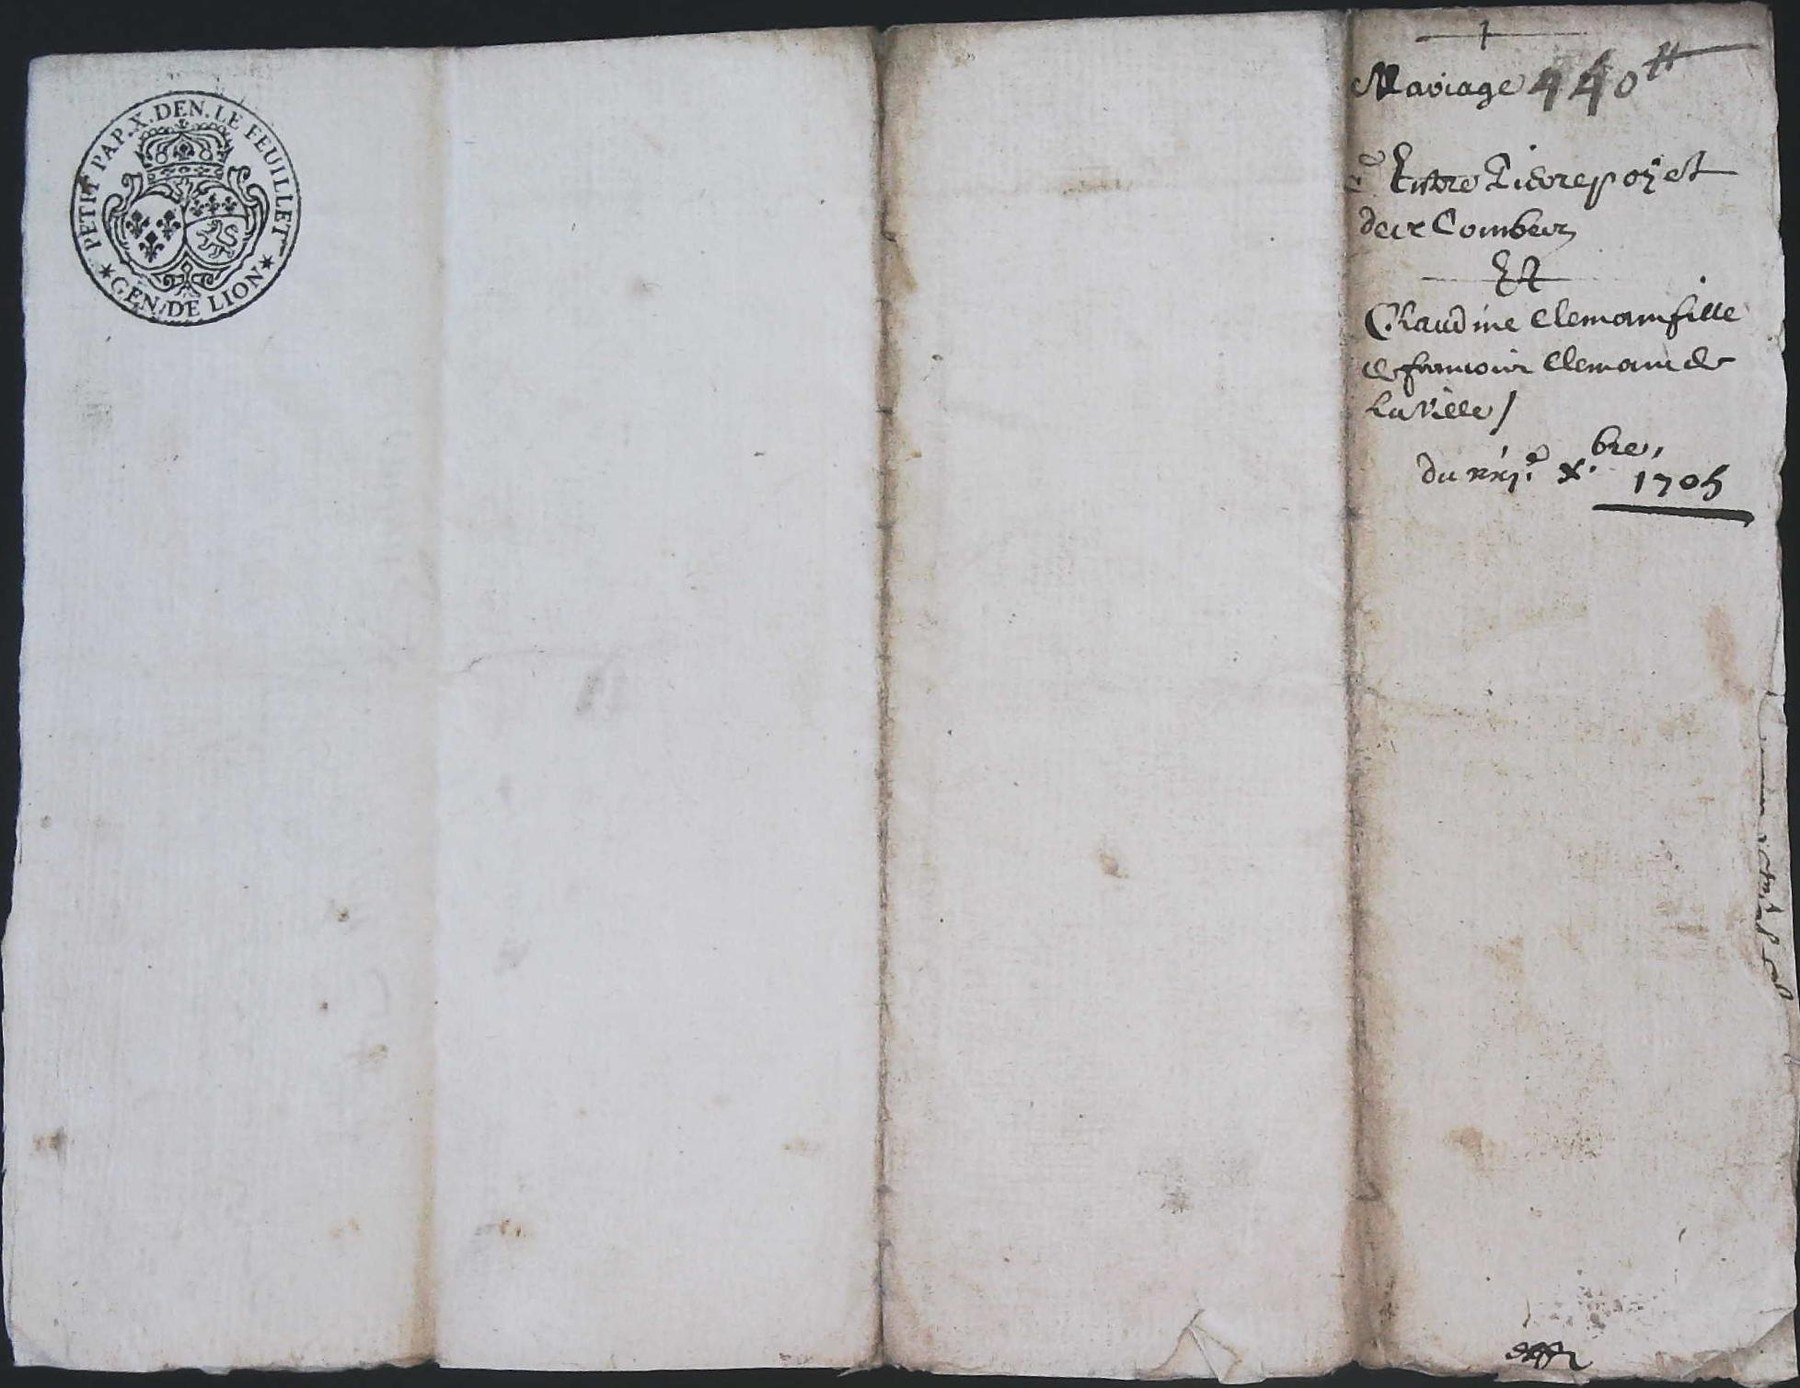 PETIT PAP. X. DEN. LE FEUILLET
GEN. DE LION
Mariage 440ᵗᵗ
Entre Pierre poyet
des Combes
Et
Claudine Clemain fille
de francois Clemain de
La Ville /
du xxjᵉ. Xbre, 1705